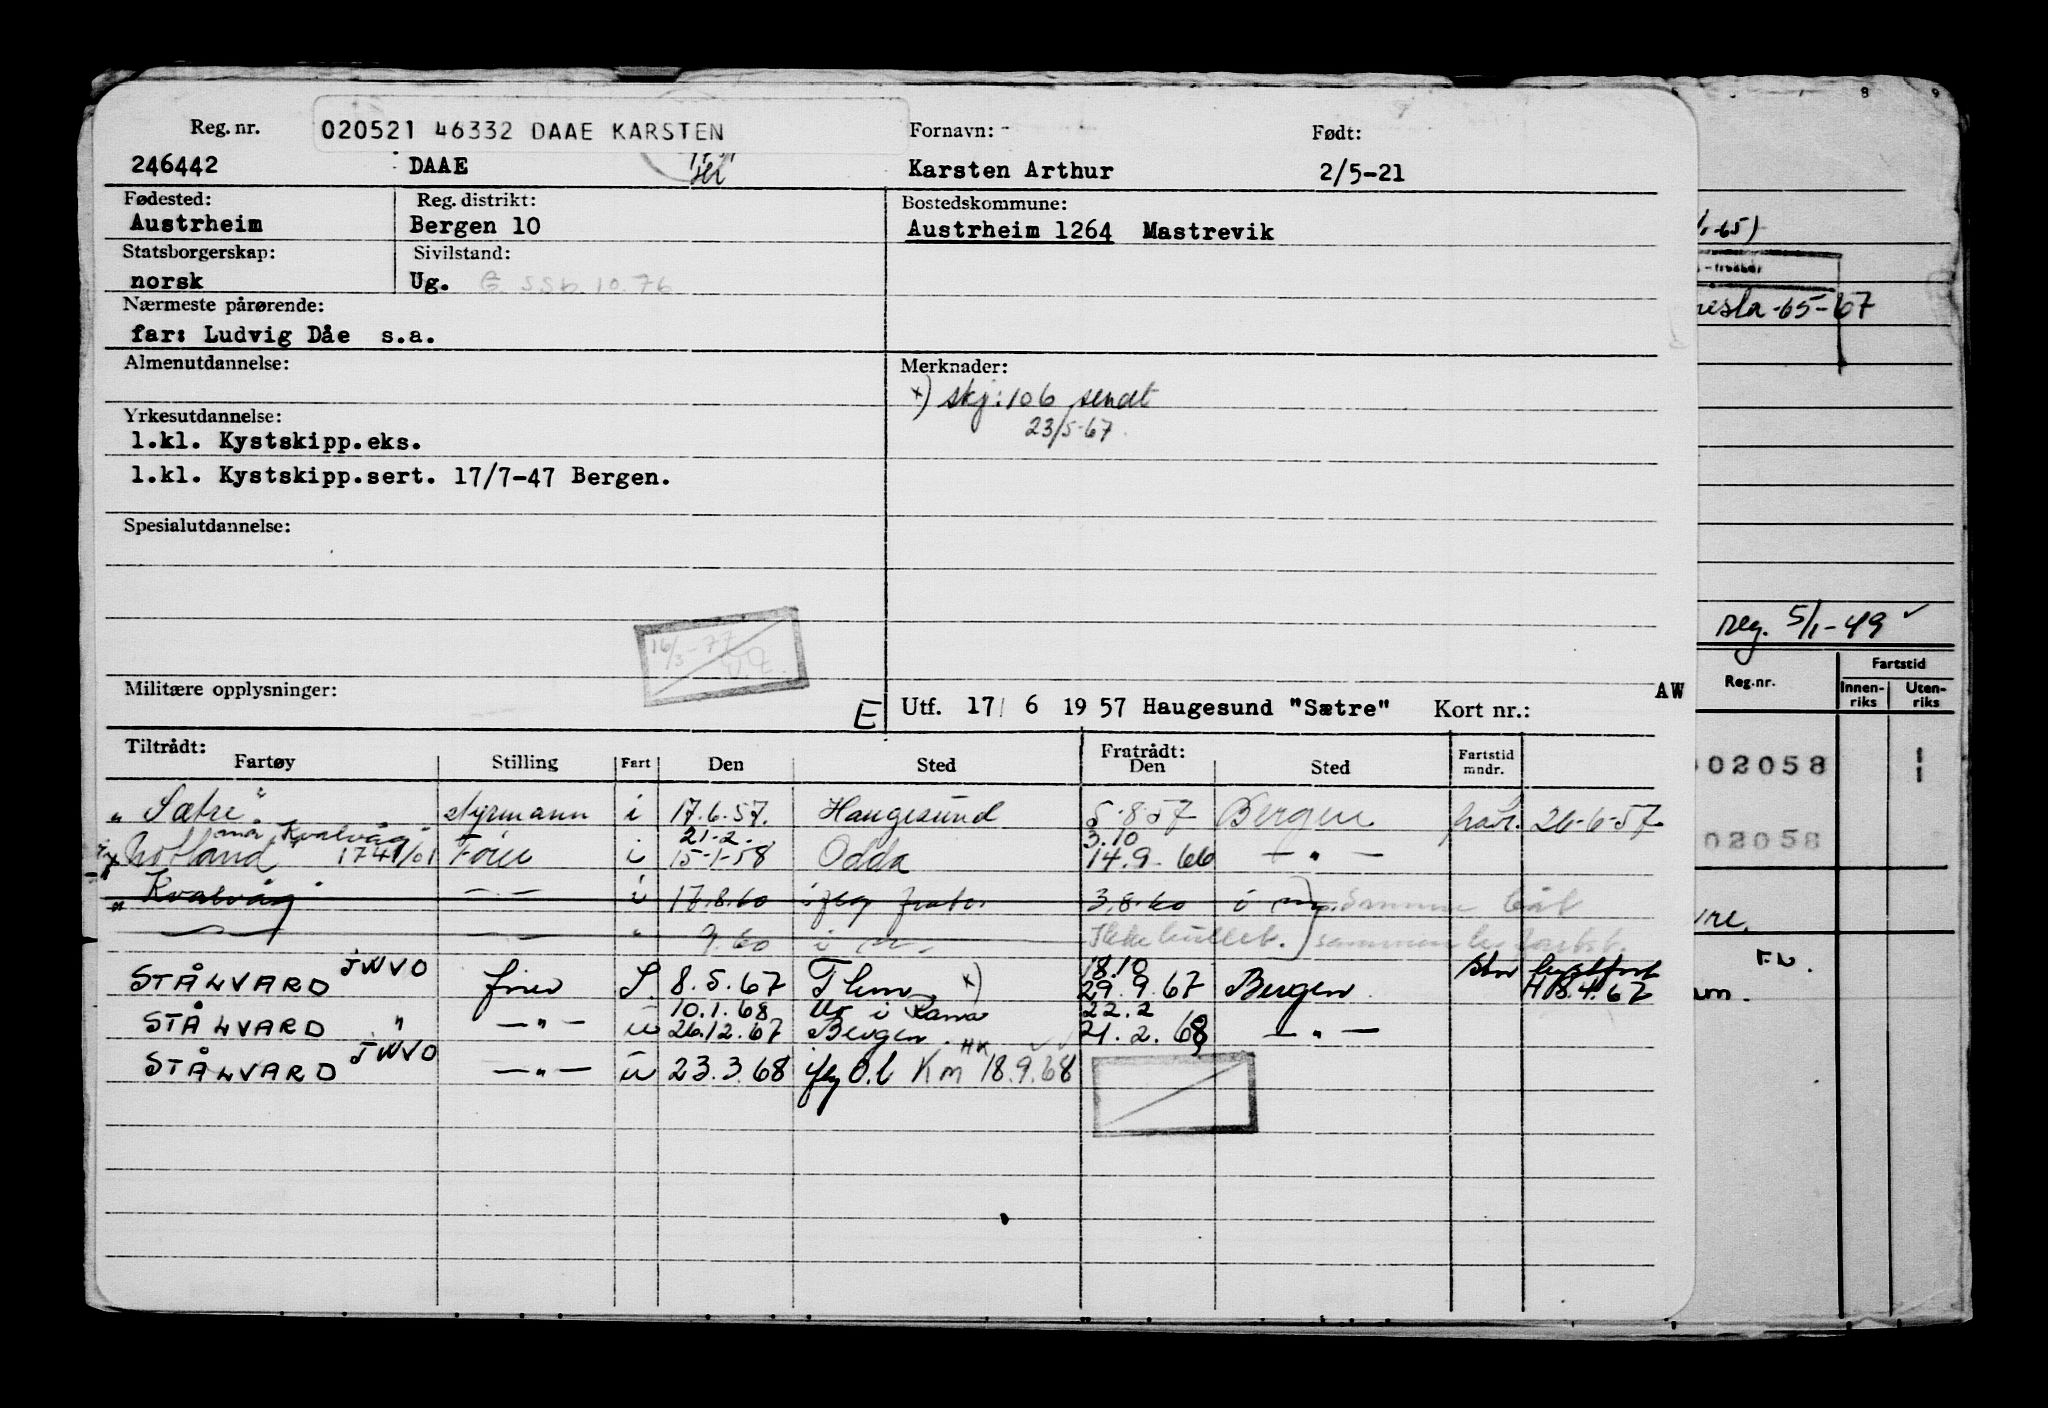 Reg. nr. 020521 46332 DAAE KARSTEN Fornavn: Født:
246442 DAAE Karsten Arthur 2/5-21
Fødested: Reg. distrikt: Bostedskommune:
Austrheim Bergen 10 Austrheim 1264 Mastrevik
Statsborgerskap: Sivilstand:
norsk Ug. G. SSb. 10.76
Nærmeste pårørende:
far: Ludvig Dåe s.a.
Almenutdannelse: Merknader:
x) skj: 106 sendt
23/5-67
Yrkesutdannelse:
1.kl. Kystskipp.eks.
1.kl. Kystskipp.sert. 17/7-47 Bergen.
Spesialutdannelse:
16/3-77
Militære opplysninger:
E Utf. 17/ 6 1957 Haugesund "Sætre" Kort nr.: AW
Tiltrådt: Fratrådt: Fartstid
Fartøy Stilling Fart Den Sted Den Sted mndr.
"Sætre" styrmann i 17.6.57. Haugesund 5.8.57 Bergen 26-6-57
Kvalvåg 21-2. 3.10
1741/01 Fører i 15-1-58 Odda 14.9.66 — " —
"Kvalvåg" — " — i 17.8.60 3.8.60 i samme båt
9.60 i Ikke
STÅLVARD JWVO fører S. 8.5.67 x) 18.10 29.9.67 Bergen
10.1.68 22.2
STÅLVARD " — " — u 26.12.67 Bergen 21.2.68 — " —
STÅLVARD JWVO — " — u 23.3.68 HK Km 18.9.68
-65)
-65-67
reg. 5/1-49
Reg.nr. Fartstid
Innenriks Utenriks
02058
02058